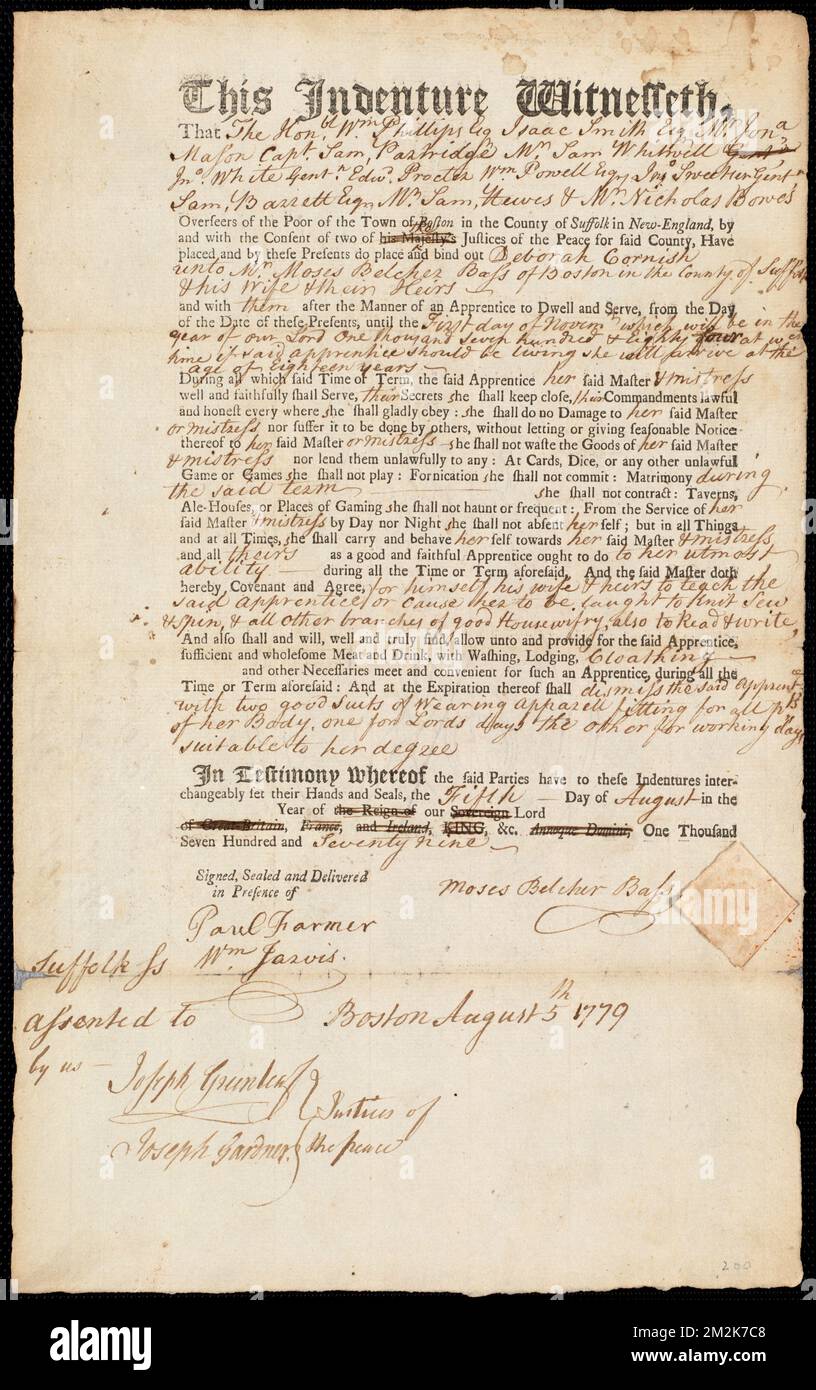 This Indenture Witnesseth,
That The Honbl Wm Phillips Esq Isaac Smith Esq Mr Jona
Mason Capt. Sam, Partridge Mr Sam Whitwell
Jno. White Gentn Edwd. Procter Wm Powell Esq Jno Sweetser Gentn
Sam, Barrett Esq Mr Sam, Hewes & Mr Nicholas Bowes
Overseers of the Poor of the Town of Boston in the County of Suffolk in New-England, by
and with the Consent of two of the his Majesty's Justices of the Peace for said County, Have
placed, and by these Presents do place and bind out Deborah Cornish
unto Mr Moses Belcher Bass of Boston in the County of Suffolk
& his Wife & their Heirs
and with them after the Manner of an Apprentice to Dwell and Serve, from the Day
of the Date of these Presents, until the First day of Novemr which will be in the
year of our Lord One thousand seven hundred & Eighty four at wch
time if said apprentice should be living she will arrive at the
age of Eighteen years
During all which said Time or Term, the said Apprentice her said Master & mistress
well and faithfully shall Serve, their Secrets she shall keep close, their Commandments lawful
and honest every where she shall gladly obey: she shall do no Damage to her said Master
or mistress nor suffer it to be done by others, without letting or giving seasonable Notice
thereof to her said Master or mistress she shall not waste the Goods of her said Master
& mistress nor lend them unlawfully to any: At Cards, Dice, or any other unlawful
Game or Games she shall not play: Fornication she shall not commit: Matrimony during
the said term she shall not contract: Taverns,
Ale-Houses, or Places of Gaming she shall not haunt or frequent: From the Service of her
said Master & mistress by Day nor Night she shall not absent her self; but in all Things
and at all Times, she shall carry and behave her self towards her said Master & mistress
and all theirs as a good and faithful Apprentice ought to do to her utmost
ability during all the Time or Term aforesaid. And the said Master doth
hereby Covenant and Agree, for himself his wife & heirs to teach the
said apprentice or cause her to be taught to Knit Sew
& Spin, & all other branches of good Housewifry, also to Read & write,
And also shall and will, well and truly find, allow unto and provide for the said Apprentice,
sufficient and wholesome Meat and Drink, with Washing, Lodging, Cloathing
and other Necessaries meet and convenient for such an Apprentice, during all the
Time or Term aforesaid: And at the Expiration thereof shall dismiss the said Apprent
with two good suits of Wearing apparell fitting for all pts
of her Body, one for Lords days the other for working days
suitable to her degree
In Testimony Whereof the said Parties have to these Indentures inter-
changeably set their Hands and Seals, the Fifth Day of August in the
Year of the Reign of our Sovereign Lord
of Great-Britain, France, and Ireland, KING, &c. Annoque Domini, One Thousand
Seven Hundred and Seventy nine
Signed, Sealed and Delivered
in Presence of
Moses Belcher Bass
Paul Farmer
Wm Jarvis.
Suffolk ss
assented to
Boston August 5th 1779
by us
Joseph Greenleaf
Joseph Gardner.
Justices of
the peace
200
alamy
Image ID: 2M2K7C8
www.alamy.com